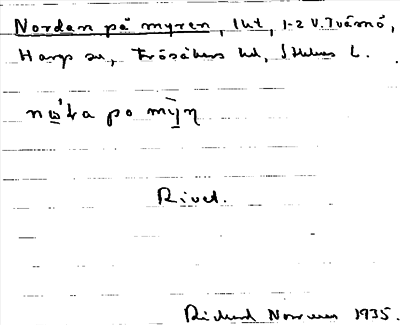 Nordan på myren, 1 ut, 1-2 V. Tvärnö,
Hargs sn, Frösåkers hd, Sthlms l.
po
Rivet.
Richard Norrman 1935.